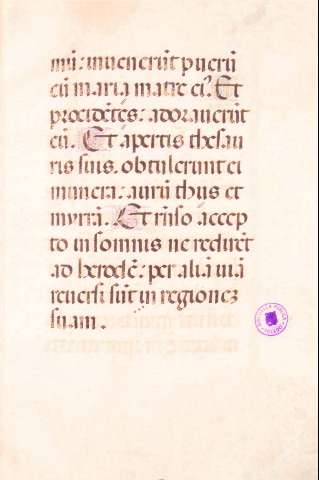 mū: invenerūt puerū
cū maria matre ei⁹. Et
procidētes: adoraverūt
eū. Et apertis thesau
ris suis. obtulerunt ei
munera: aurū thus et
myrrā. Et rn̄so accep
to in somnis ne redirēt
ad herodē: per aliā viā
reversi sūt in regionē
suam.